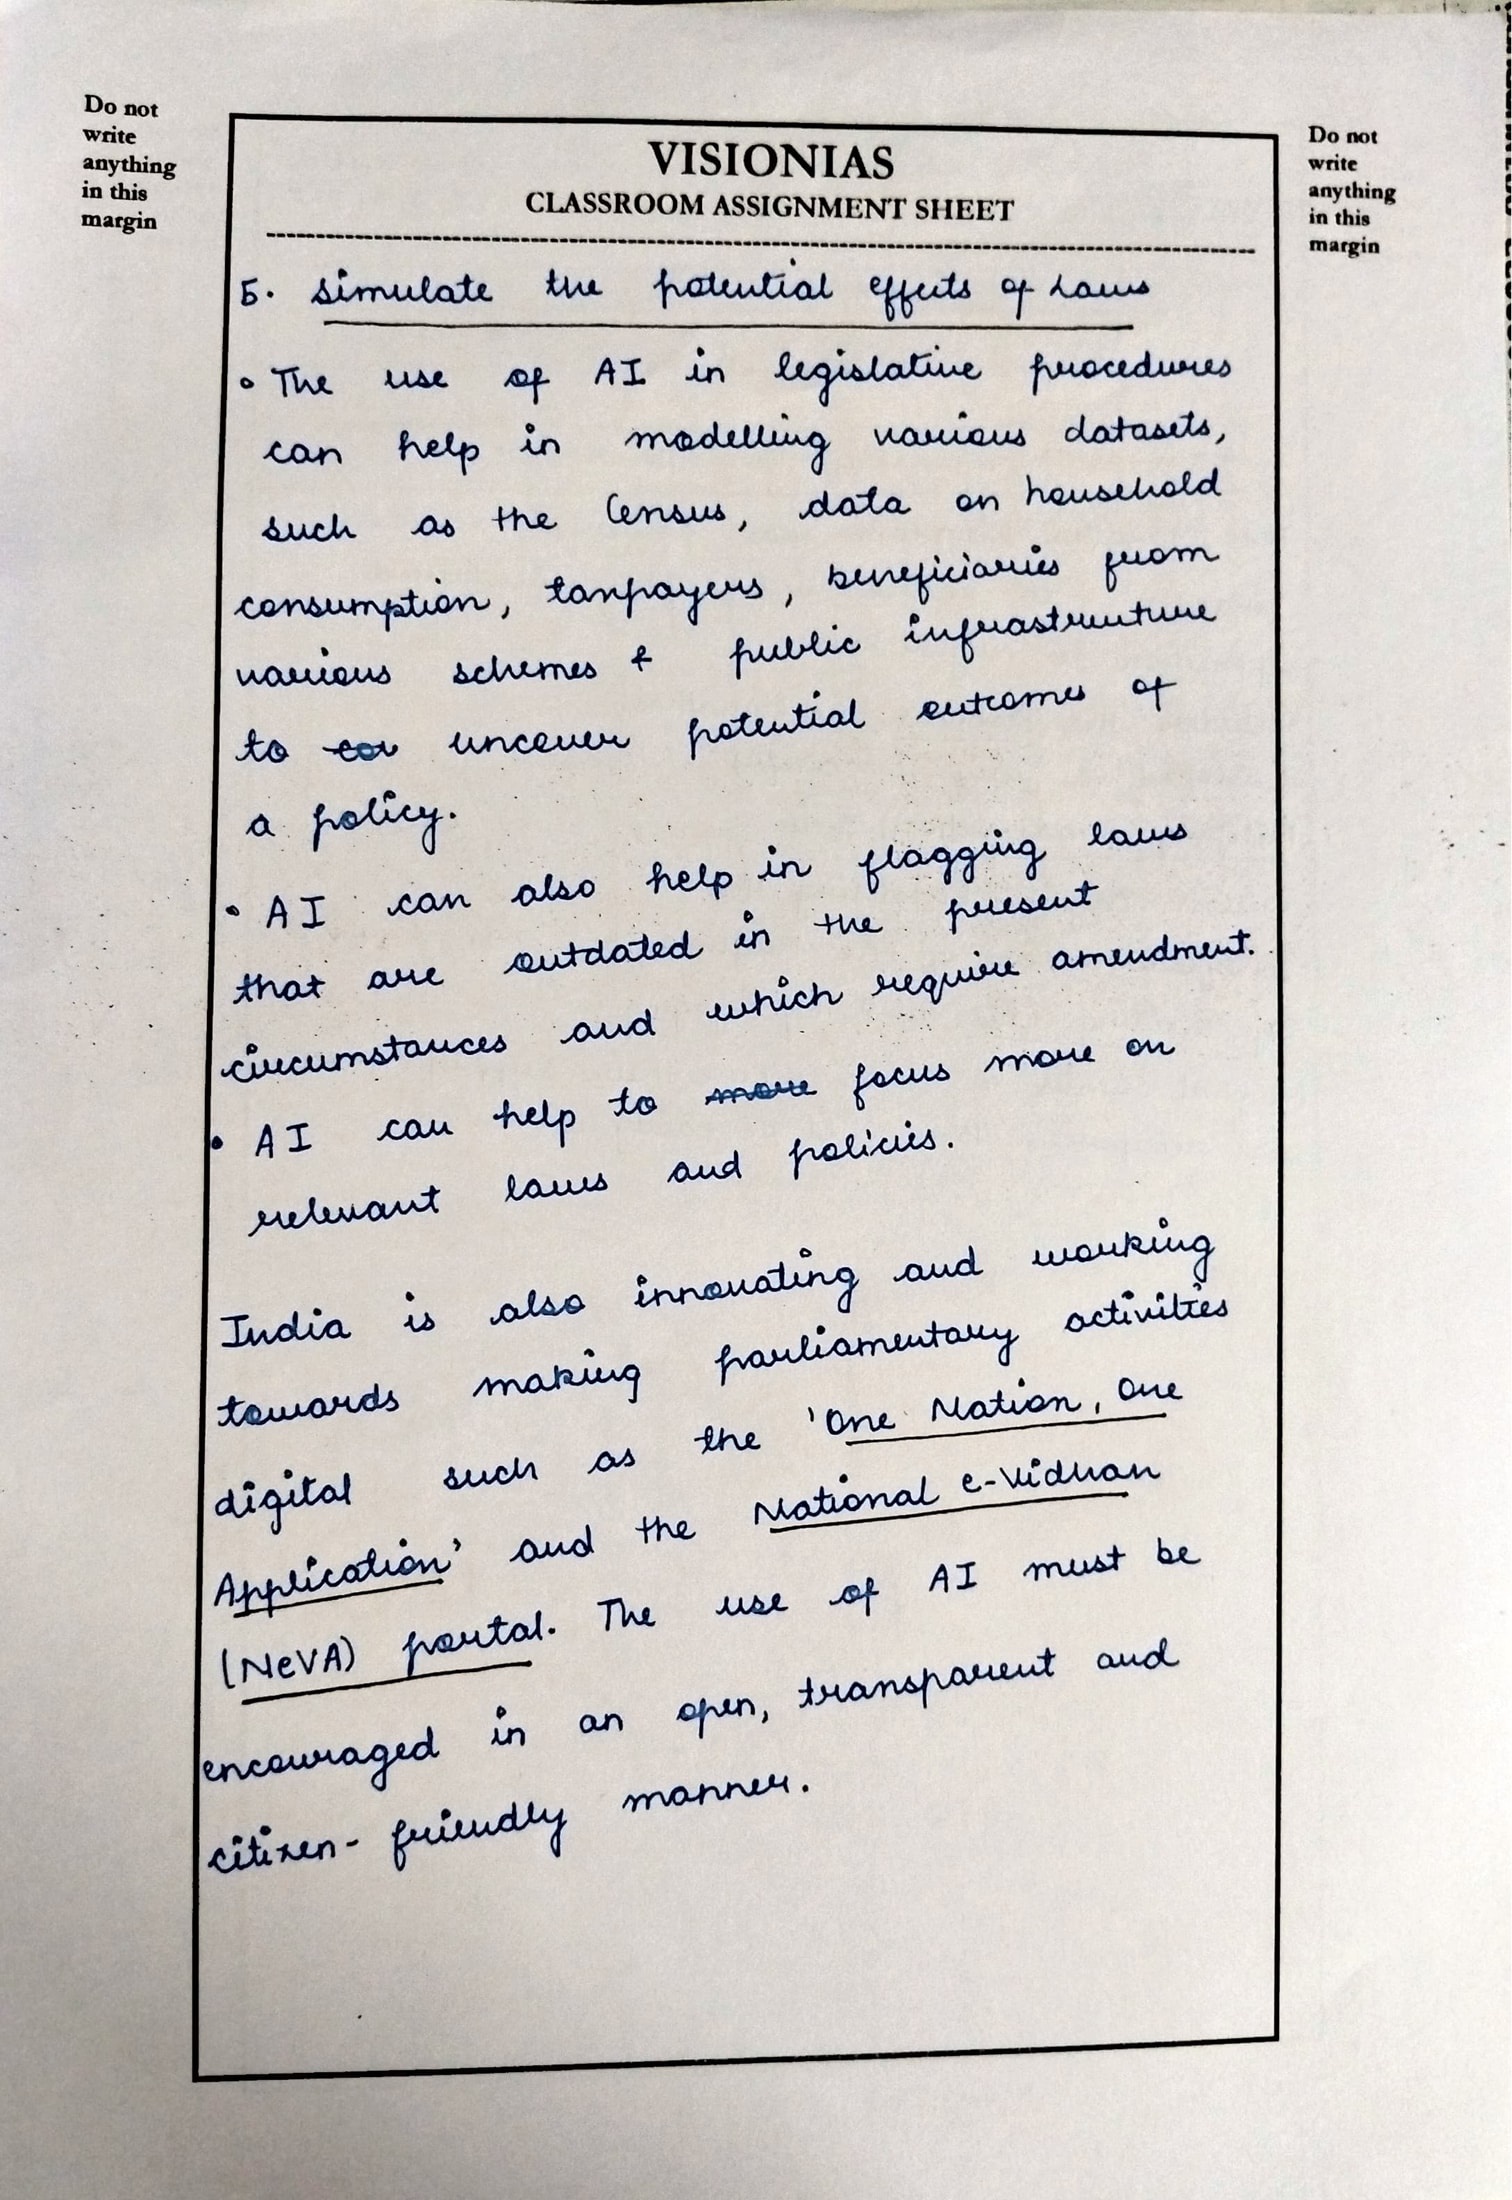 Do not
write
anything
in this
margin
VISIONIAS
CLASSROOM ASSIGNMENT SHEET
Do not
write
anything
in this
margin
5. Simulate the potential effects of Laws
• The use of AI in legislative procedures
can help in modelling various datasets,
such as the Census, data on household
consumption, taxpayers, beneficiaries from
various schemes & public infrastructure
to uncover potential outcomes of
a policy.
• AI can also help in flagging laws
that are outdated in the present
circumstances and which require amendment.
• AI can help to more focus more on
relevant laws and policies.
India is also innovating and working
towards making parliamentary activities
digital such as the 'One Nation, One
Application' and the National e-Vidhan
(NeVA) portal. The use of AI must be
encouraged in an open, transparent and
citizen-friendly manner.